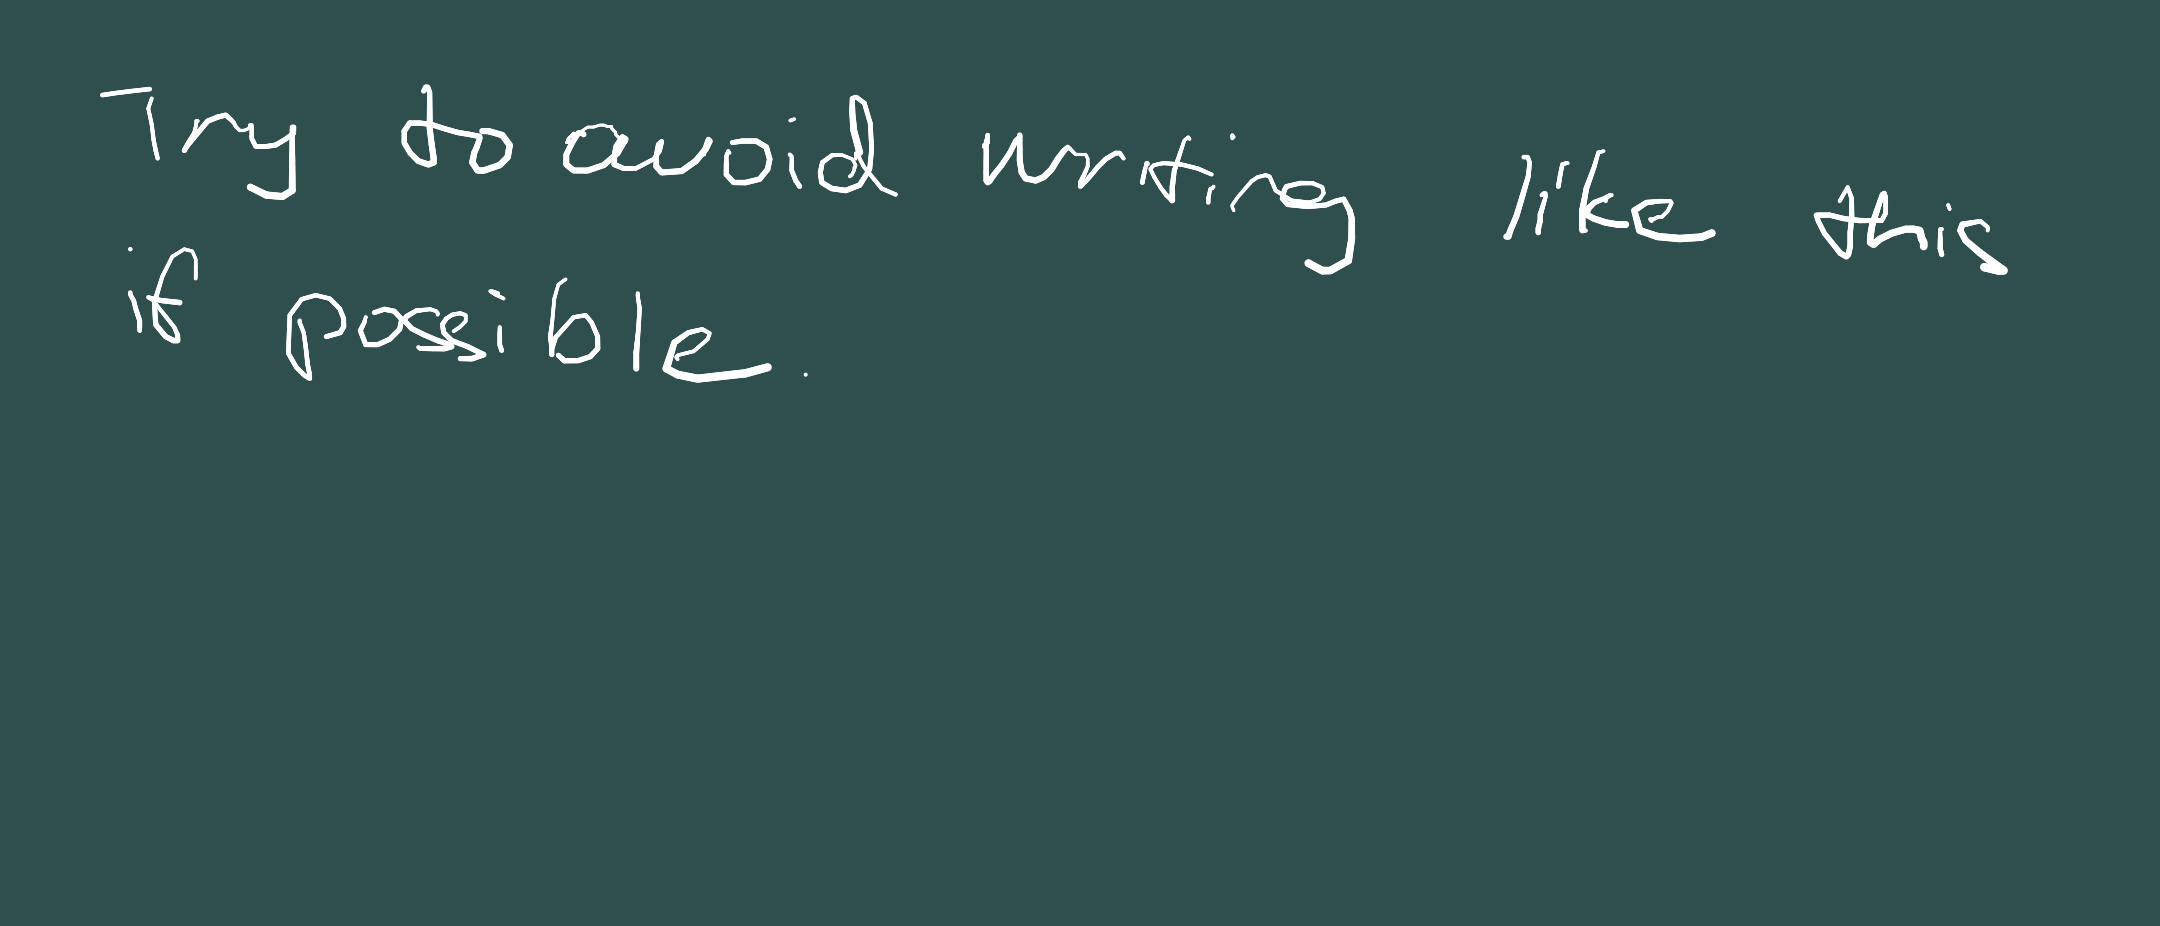 Try to avoid writing like this
if possible.